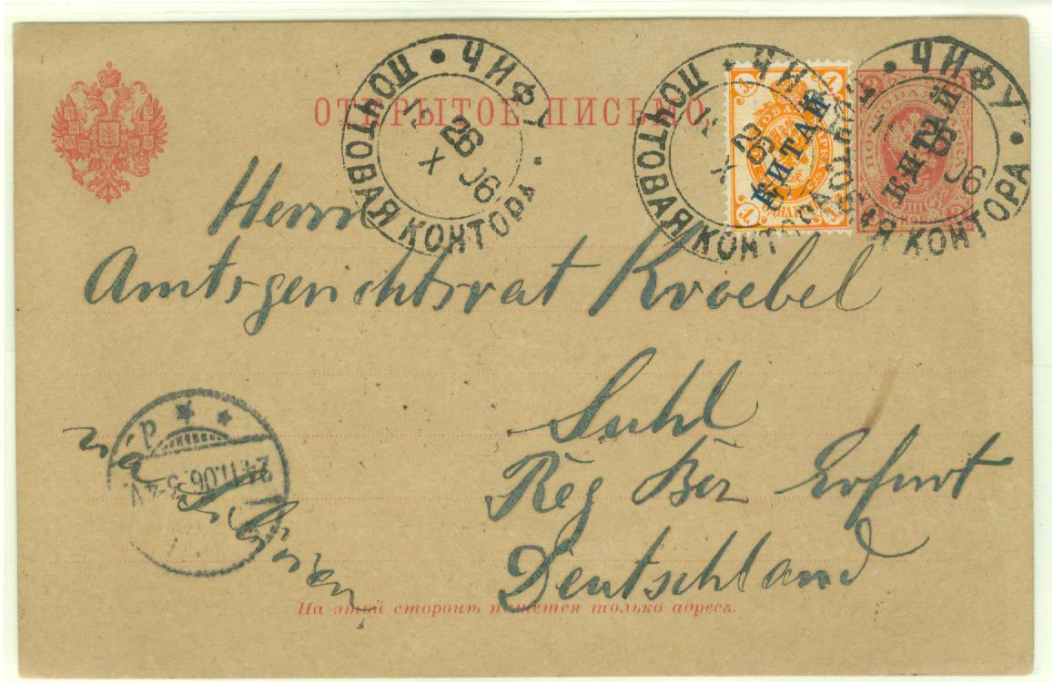 ОТКРЫТОЕ ПИСЬМО.
ЧИФУ • ПОЧТОВАЯ КОНТОРА •
26 X 06
ЧИФУ
ПОЧТОВАЯ КОНТОРА
X
КИТАЙ
1
1
ЧИФУ • ПОЧТОВАЯ КОНТОРА
06
КИТАЙ
Herrn
Amtsgerichtsrat Kroebel
Suhl
Reg Bez Erfurt
Deutschland
via Sibirien
24.11.06. 3-4V.
На этой сторонѣ пишется только адресъ.